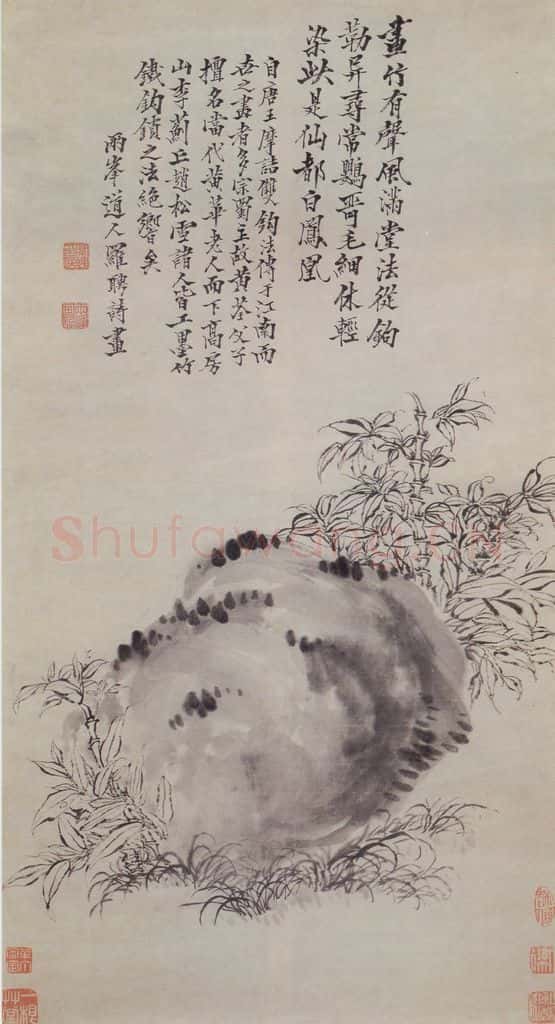 畫竹有聲風滿堂法從鉤
勒异尋常鸚哥毛細休輕
染此是仙都白鳳凰
自唐王摩詰雙鉤法傳于江南而
世之畫者多宗蜀主故黃荃父子
擅名當代黃華老人而下高房
山李薊丘趙松雪諸人皆工墨竹
鐵鉤鎖之法絕響矣
兩峯道人羅聘詩畫
Shufawang.CN